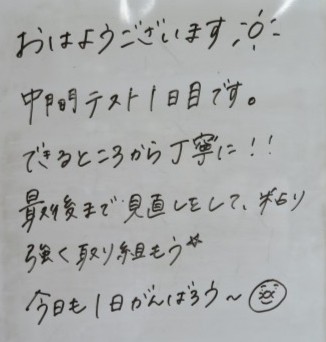 おはようございます
中間テスト1日目です。
できるところから丁寧に!!
最後まで見直しをして、粘り
強く取り組もう☆
今日も1日がんばろう～